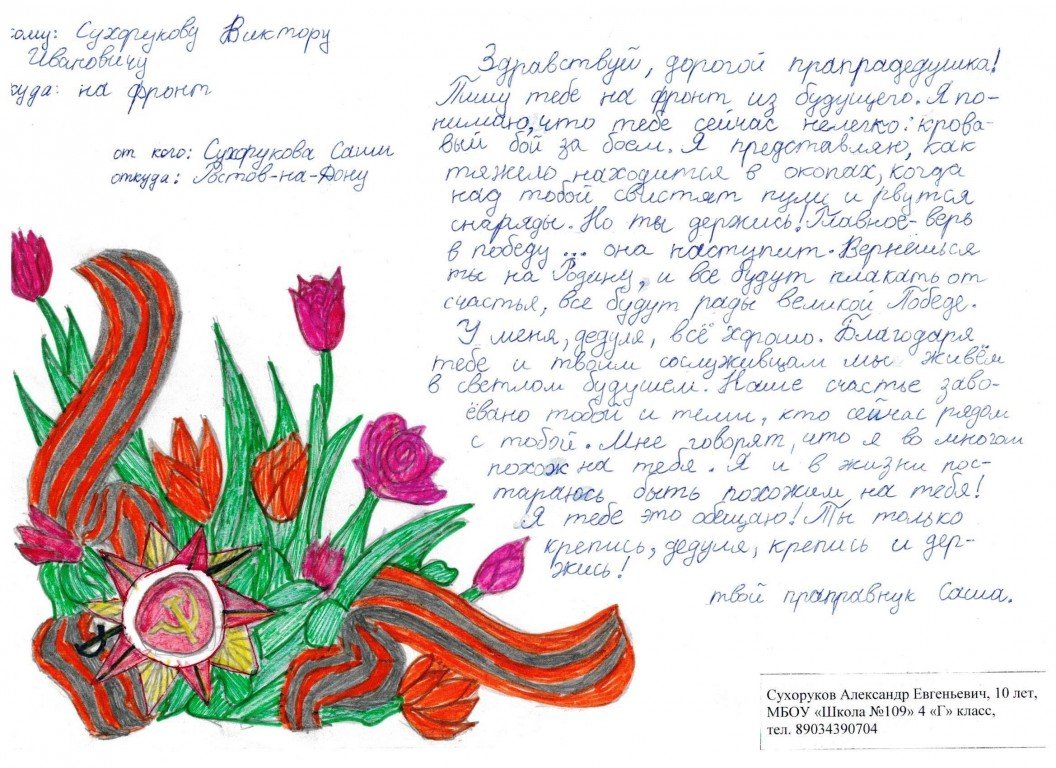 кому: Сухорукову Виктору
Ивановичу
куда: на фронт
от кого: Сухорукова Саши
откуда: Ростов-на-Дону
Здравствуй, дорогой прапрадедушка!
Пишу тебе на фронт из будущего. Я по-
нимаю, что тебе сейчас нелегко: крова-
вый бой за боем. Я представляю, как
тяжело находится в окопах, когда
над тобой свистят пули и рвутся
снаряды. Но ты держись! Главное- верь
в победу ... она наступит. Вернёшься
ты на Родину, и все будут плакать от
счастья, все будут рады великой Победе.
У меня, дедуля, всё хорошо. Благодаря
тебе и твоим сослуживцам мы живём
в светлом будущем. Наше счастье заво-
ёвано тобой и теми, кто сейчас рядом
с тобой. Мне говорят, что я во многом
похож на тебя. Я и в жизни пос-
тараюсь быть похожим на тебя!
Я тебе это обещаю! Ты только
крепись, дедуля, крепись и дер-
жись!
твой праправнук Саша.
Сухоруков Александр Евгеньевич, 10 лет,
МБОУ «Школа №109» 4 «Г» класс,
тел. 89034390704